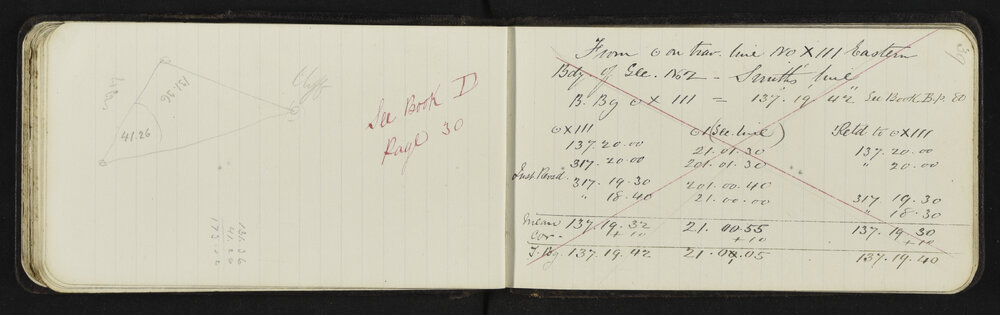 Cliff
131.36
41.26
See Book D
Page 30
131.36
41.26
172.62
39
From ⊙ on trav. line No X111 Eastern
Bdy of Sec. No 2 - Smith's line
B. Bg ⊙ X 111 = 137.19.42 See Book B. P. 80
⊙ X111 ⊙ 1 (Sec. line) Retd to ⊙ X111
137.20.00 21.01.30 137.20.00
317.20.00 201.01.30 " 20.00
Inst. Revd. 317.19.30 201.00.40 317.19.30
" 18.40 21.00.00 " 18.30
Mean 137.19.32 21.00.55 137.19.30
Cor. +10 +10 +10
T. Bg. 137.19.42 21.01.05 137.19.40